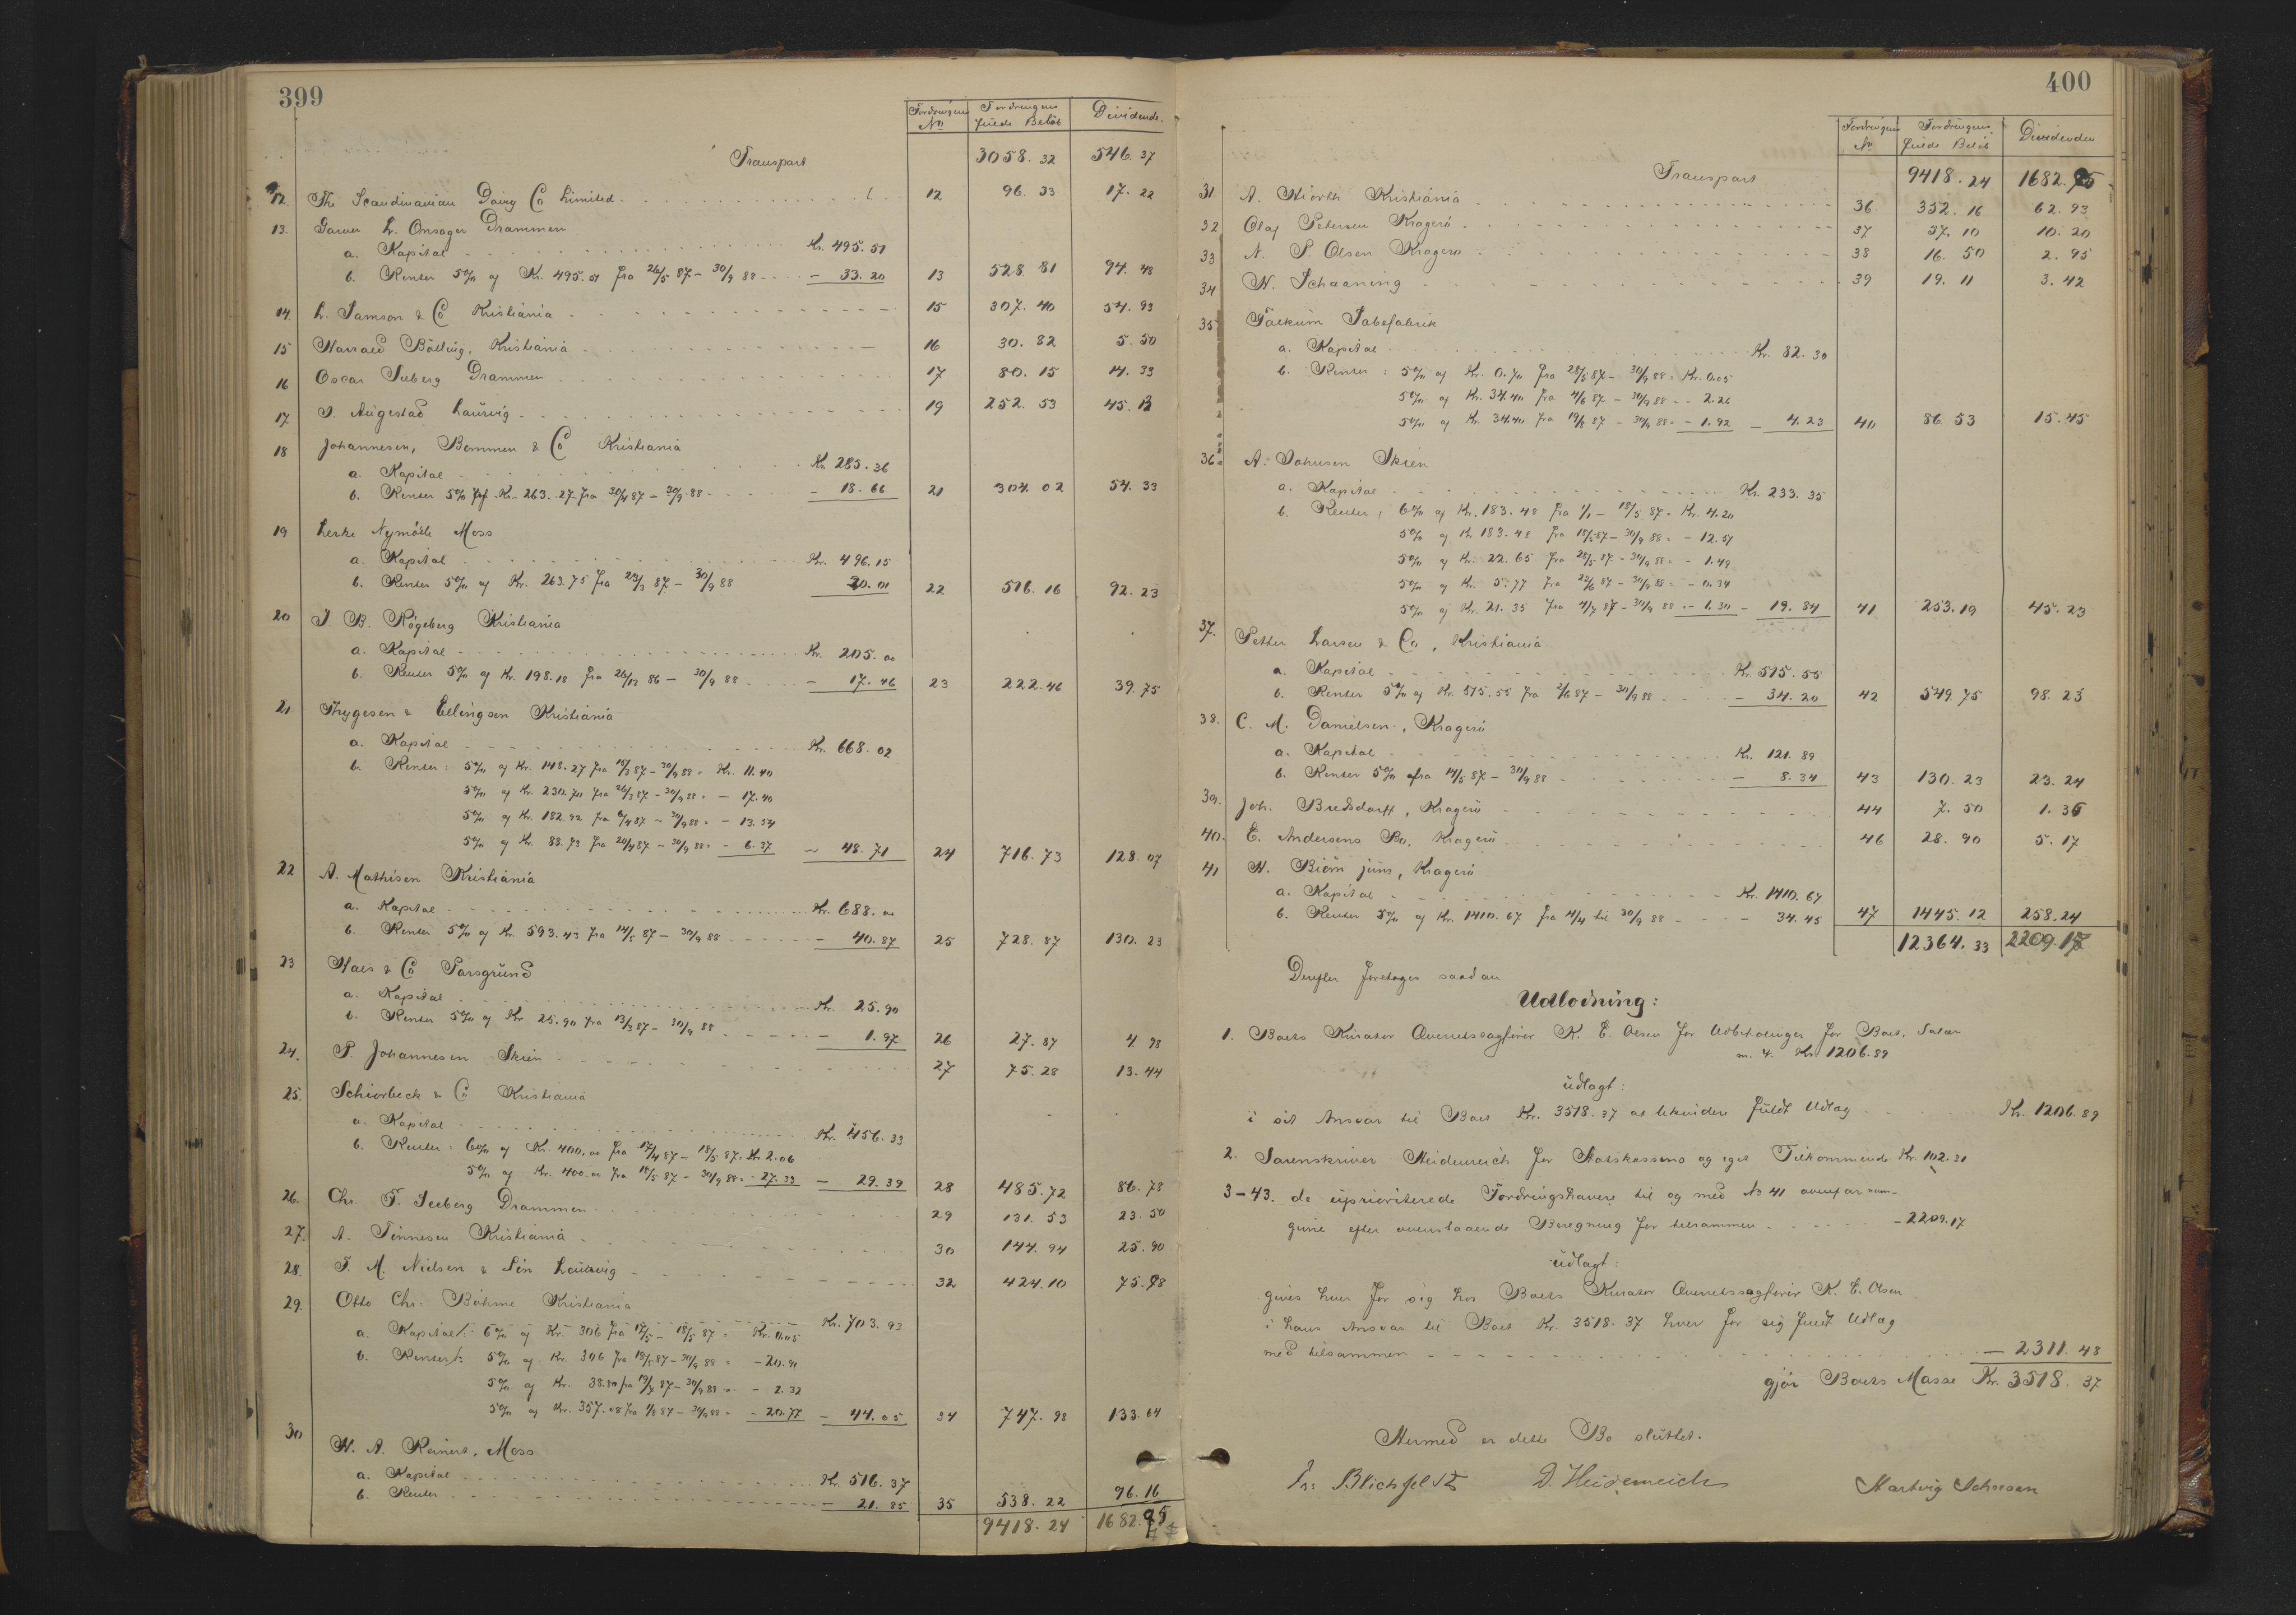 399
Fordringens No Fordringens fulde Beløb Dividende.
Transport 3058. 32 546. 37
12. The Scandinavian Dairy Co Limited 12 96. 33 17. 22
13. Garver L. Onsager Drammen
a. Kapital Kr. 495. 51
b. Renter 5% af Kr. 495. 51 fra 26/5 87 - 30/9 88 - 33. 20 13 528. 81 94. 48
14. L. Samson & Co Kristiania 15 307. 40 54. 93
15 Harald Bölling, Kristiania 16 30. 82 5. 50
16 Oscar Seeberg Drammen 17 80. 15 14. 33
17. J. Augestad Laurvig 19 252. 53 45. 13
18 Johannesen, Bemmen & Co Kristiania
a. Kapital Kr. 285. 36
b. Renter 5% af Kr. 263. 27 fra 30/4 87 - 30/9 88 - 18. 66 21 304. 02 54. 33
19 Lerke Nymölle Moss
a. Kapital Kr. 496. 15
b. Renter 5% af Kr. 263. 75 fra 23/3 87 - 30/9 88 20. 01 22 516. 16 92. 23
20 J. B. Rögeberg Kristiania
a. Kapital Kr. 205. 00
b. Renter 5% af Kr. 198. 18 fra 26/12 86 - 30/9 88 - 17. 46 23 222. 46 39. 75
21 Thygesen & Ellingsen Kristiania
a. Kapital Kr. 668. 02
b. Renter: 5% af Kr. 148. 27 fra 15/3 87 - 30/9 88 = Kr. 11. 40
5% af Kr. 230. 70 fra 26/3 87 - 30/9 88 = - 17. 40
5% af Kr. 182. 92 fra 6/4 87 - 30/9 88 = - 13. 54
5% af Kr. 88. 73 fra 20/4 87 - 30/9 88 = - 6. 37 - 48. 71 24 716. 73 128. 07
22 A. Mathisen Kristiania
a. Kapital Kr. 688. 00
b. Renter 5% af Kr. 593. 43 fra 14/5 87 - 30/9 88 - 40. 87 25 728. 87 130. 23
23 Haes & Co Porsgrund
a. Kapital Kr. 25. 90
b. Renter 5% af Kr. 25. 90 fra 13/3 87 - 30/9 88 - 1. 97 26 27. 87 4. 98
24. P. Johannesen Skien 27 75. 28 13. 44
25. Schiorbeck & Co Kristiania
a. Kapital Kr. 456. 33
b. Renter: 6% af Kr. 400. 00 fra 17/4 87 - 18/5 87 = Kr. 2. 06
5% af Kr. 400. 00 fra 18/5 87 - 30/9 88 = - 27. 33 - 29. 39 28 485. 72 86. 78
26. Chr. F. Seeberg Drammen 29 131. 53 23. 50
27. A. Tönnesen Kristiania 30 144. 94 25. 90
28. J. M. Nielsen & Sön Laurvig 32 424. 10 75. 78
29. Otto Chr. Böhme Kristiania
a. Kapital Kr. 703. 93
b. Renter: 6% af Kr. 306 fra 17/5 - 18/5 87 = Kr. 0.05
5% af Kr. 306 fra 18/5 87 - 30/9 88 = - 20. 91
5% af Kr. 38. 80 fra 19/7 87 - 30/9 88 = - 2. 32
5% af Kr. 357. 08 fra 1/8 87 - 30/9 88 = - 20. 77 - 44. 05 34 747. 98 133. 64
30 H. A. Reinert, Moss
a. Kapital Kr. 516. 37
b. Renter - 21. 85 35 538. 22 96. 16
9418. 24 1682. 95
400
Fordringens No Fordringens fulde Beløb Dividenden
Transport 9418. 24 1682. 95
31. A. Hiorth Kristiania 36 352. 16 62. 93
32 Olaf Petersen Kragerö 37 57. 10 10. 20
33 N. P. Olsen Kragerö 38 16. 50 2. 95
34 H. Schaaning 39 19. 11 3. 42
35 Falkum Sæbefabrik
a. Kapital Kr. 82. 30
b. Renter: 5% af Kr. 0. 70 fra 28/5 87 - 30/9 88 = Kr. 0.05
5% af Kr. 34. 40 fra 4/6 87 - 30/9 88 = - 2. 26
5% af Kr. 34. 40 fra 19/8 87 - 30/9 88 = - 1. 92 - 4. 23 40 86. 53 15. 45
36. A. Johnsen Skien
a. Kapital Kr. 233. 35
b. Renter, 6% af Kr. 183. 48 fra 1/1 - 18/5 87 = Kr. 4. 20
5% af Kr. 183. 48 fra 18/5 87 - 30/9 88 = - 12. 51
5% af Kr. 22. 65 fra 28/5 87 - 30/9 88 = - 1. 49
5% af Kr. 5. 77 fra 22/6 87 - 30/9 88 = - 0. 34
5% af Kr. 21. 35 fra 4/7 87 - 30/9 88 = - 1. 30 - 19. 84 41 253. 19 45. 23
37. Petter Larsen & Co, Kristiania
a. Kapital Kr. 515. 55
b. Renter 5% af Kr. 515. 55 fra 2/6 87 - 30/9 88 - 34. 20 42 549. 75 98. 23
38. C. M. Danielsen, Kragerö
a. Kapital Kr. 121. 89
b. Renter 5% fra 14/5 87 - 30/9 88 - 8. 34 43 130. 23 23. 24
39. Joh. Bredsdorff, Kragerö 44 7. 50 1. 35
40. E. Andersens Bo, Kragerö 46 28. 90 5. 17
41 H. Biörn jüns, Kragerö
a. Kapital Kr. 1410. 67
b. Renter 5% af Kr. 1410. 67 fra 4/4 til 30/9 88 - 34. 45 47 1445. 12 258. 24
12364. 33 2209. 17
Derefter foretoges saadan
Udlodning:
1. Boets Kurator Overretssagförer K. E. Olsen for Udbetalinger for Boet, Salær
m. v. Kr 1206. 89
udlagt:
i sit Ansvar til Boet Kr. 3518. 37 at likvidere fuldt Udlæg Kr. 1206. 89
2. Sorenskriver Heidenreich for Statskassens og eget Tilkommende Kr. 102. 31
3-43. de uprioriterede Fordringshavere til og med No 41 ovenfor num-
gine efter ovenstaaende Beregning for tilsammen - 2209. 17
udlagt:
gives hver for sig hos Boets Kurator Overretssagförer K. E. Olsen
i hans Ansvar til Boet Kr. 3518. 37 hver for sig fuldt Udlæg
med tilsammen - 2311. 48
gjör Boets Masse Kr. 3518. 37
Hermed er dette Bo sluttet.
Blichfeldt D. Heidenreich Hartvig Johnsen